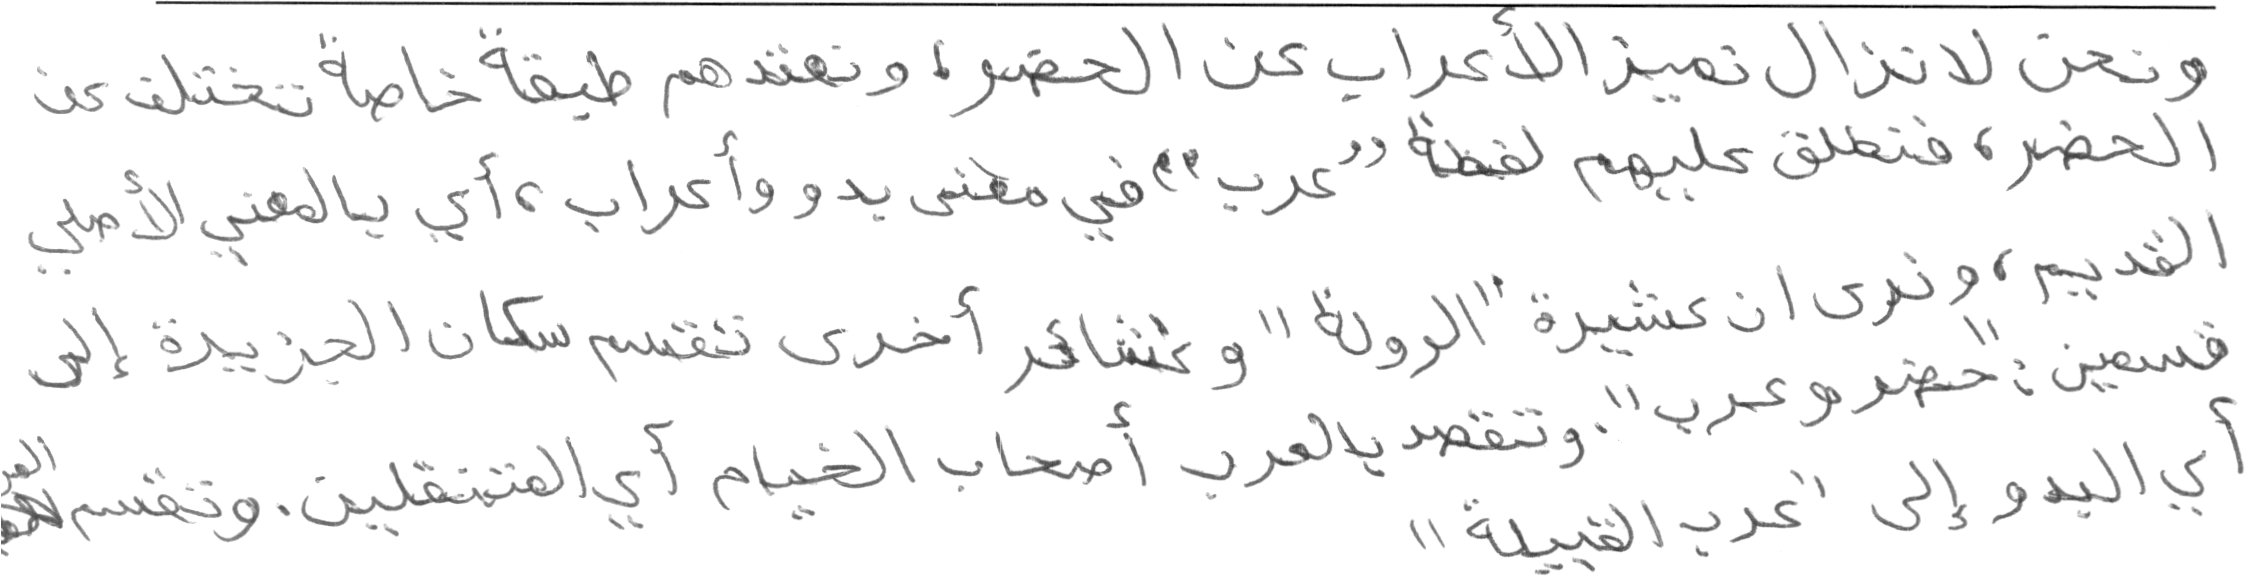 ونحن لا نزال نميز الأعراب عن الحضر، ونعتدهم طبقة خاصة تختلف عن
الحضر، فنطلق عليهم لفظة "عرب" في معنى بدو وأعراب، أي بالمعني الأصلي
القديم، ونرى ان عشيرة "الرولة" وعشائر أخرى تقسم سكان الجزيرة إلى
قسمين: "حضر وعرب". وتقصد بالعرب أصحاب الخيام أي المتنقلين. وتقسم العر
أي البدو إلى "عرب القبيلة"